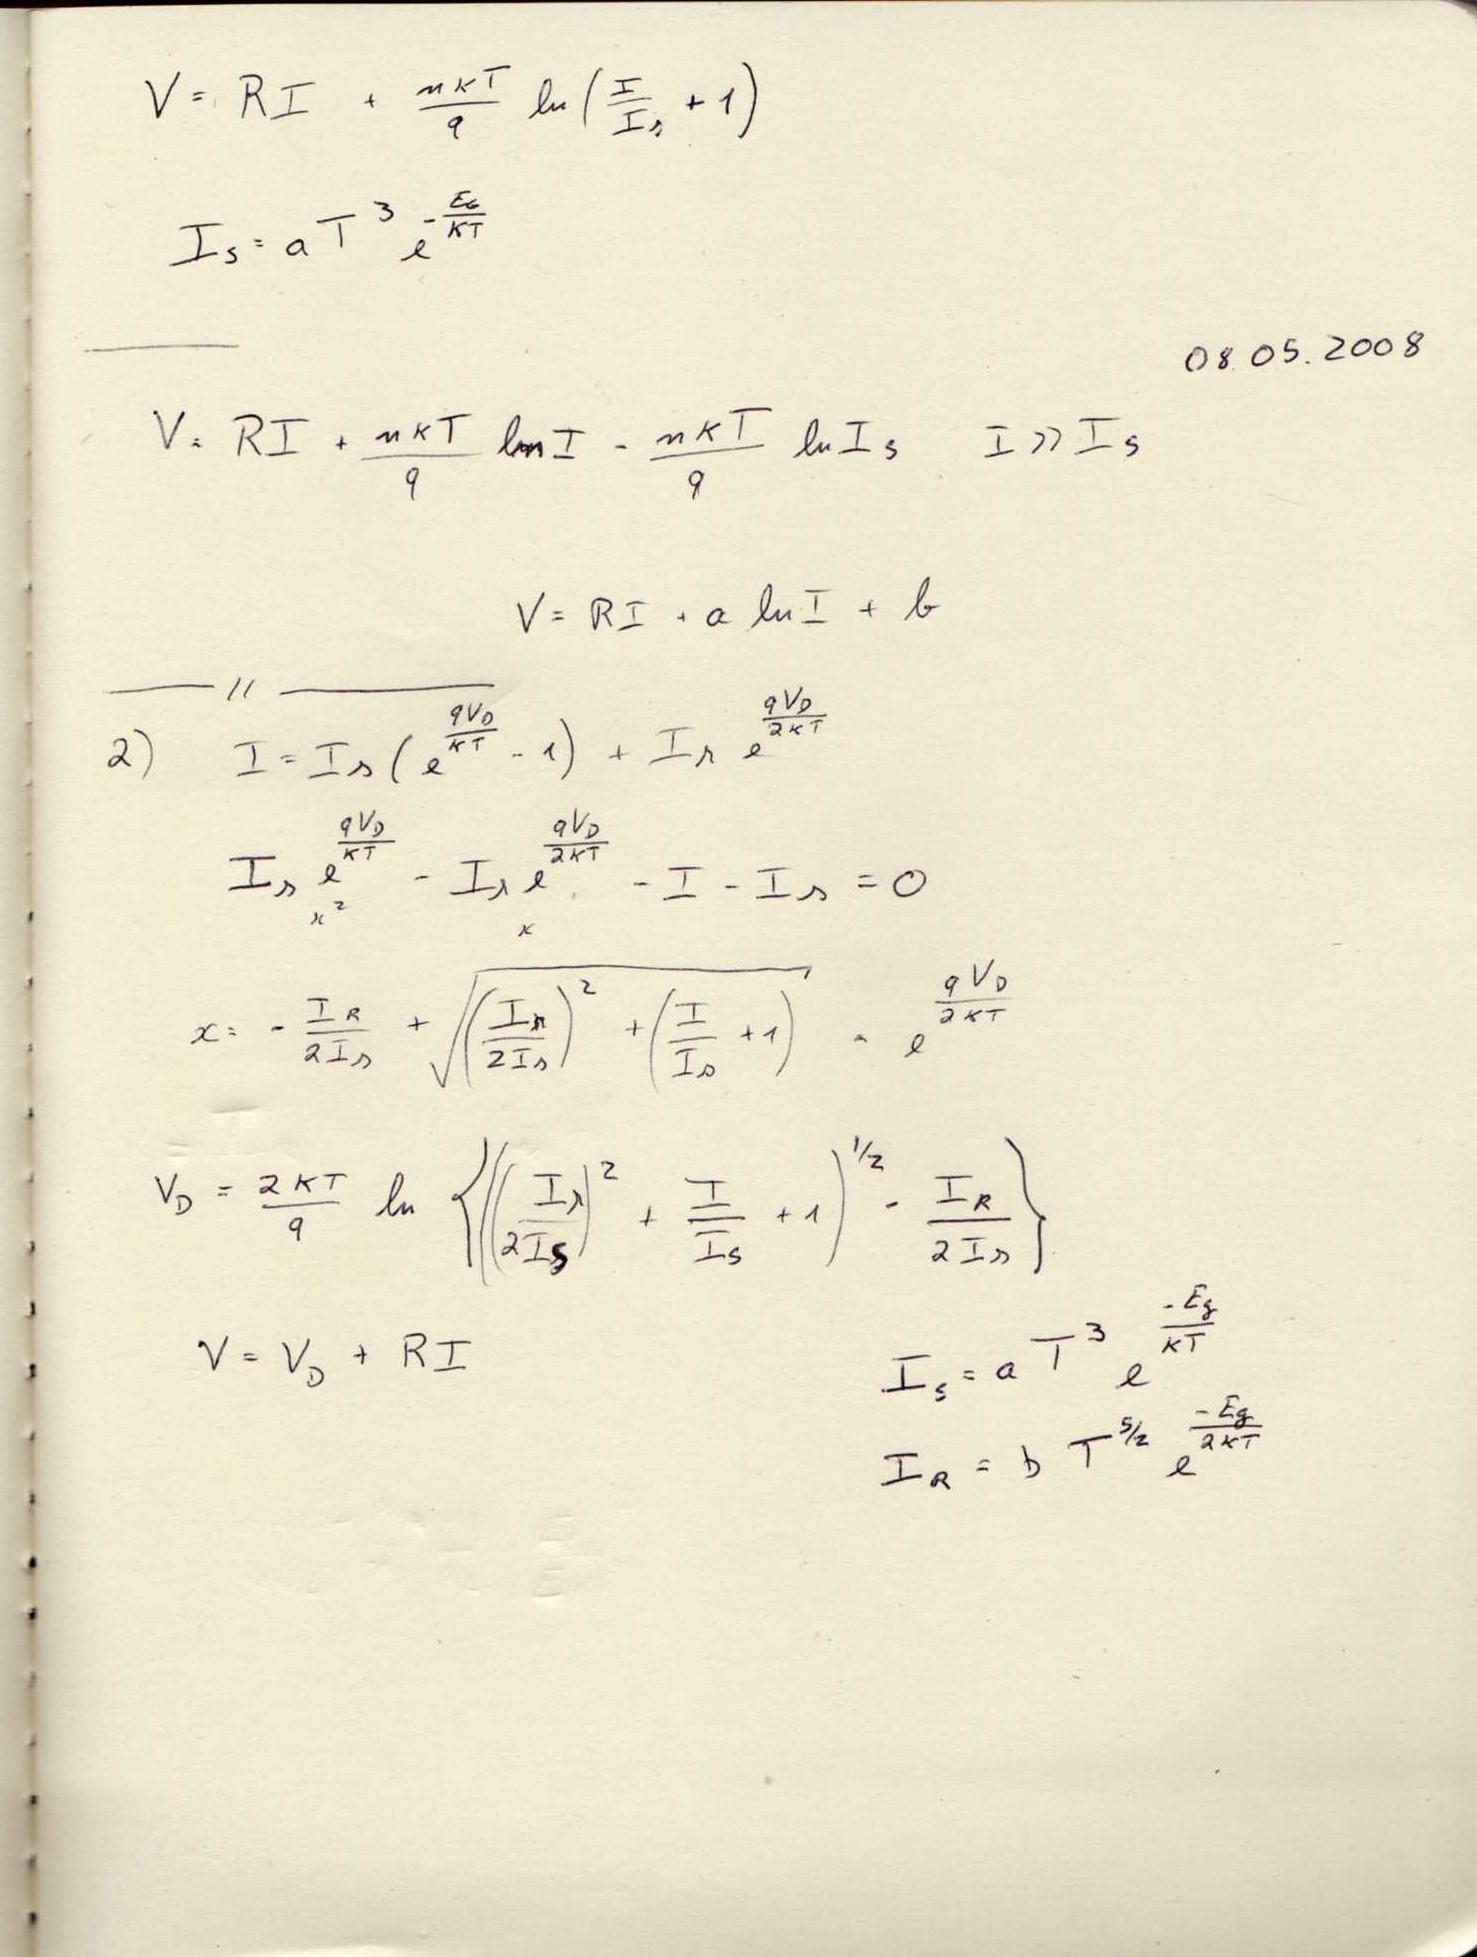 V = RI + nkT/q ln(I/Is + 1)
Is = aT³ e^(-EG/KT)
08.05.2008
V = RI + nkT/q ln I - nkT/q ln Is I >> Is
V = RI + a ln I + b
//
2) I = Is (e^(qVD/KT) - 1) + Ir e^(qVD/2KT)
Is e^(qVD/KT) - Ir e^(qVD/2KT) - I - Is = 0
x² x
x = - IR/2Is + √((IR/2Is)² + (I/Is + 1)) = e^(qVD/2KT)
VD = 2KT/q ln {((Ir/2Is)² + I/Is + 1)^1/2 - IR/2Is}
V = VD + RI
Is = a T³ e^(-Eg/KT)
IR = b T^5/2 e^(-Eg/2KT)